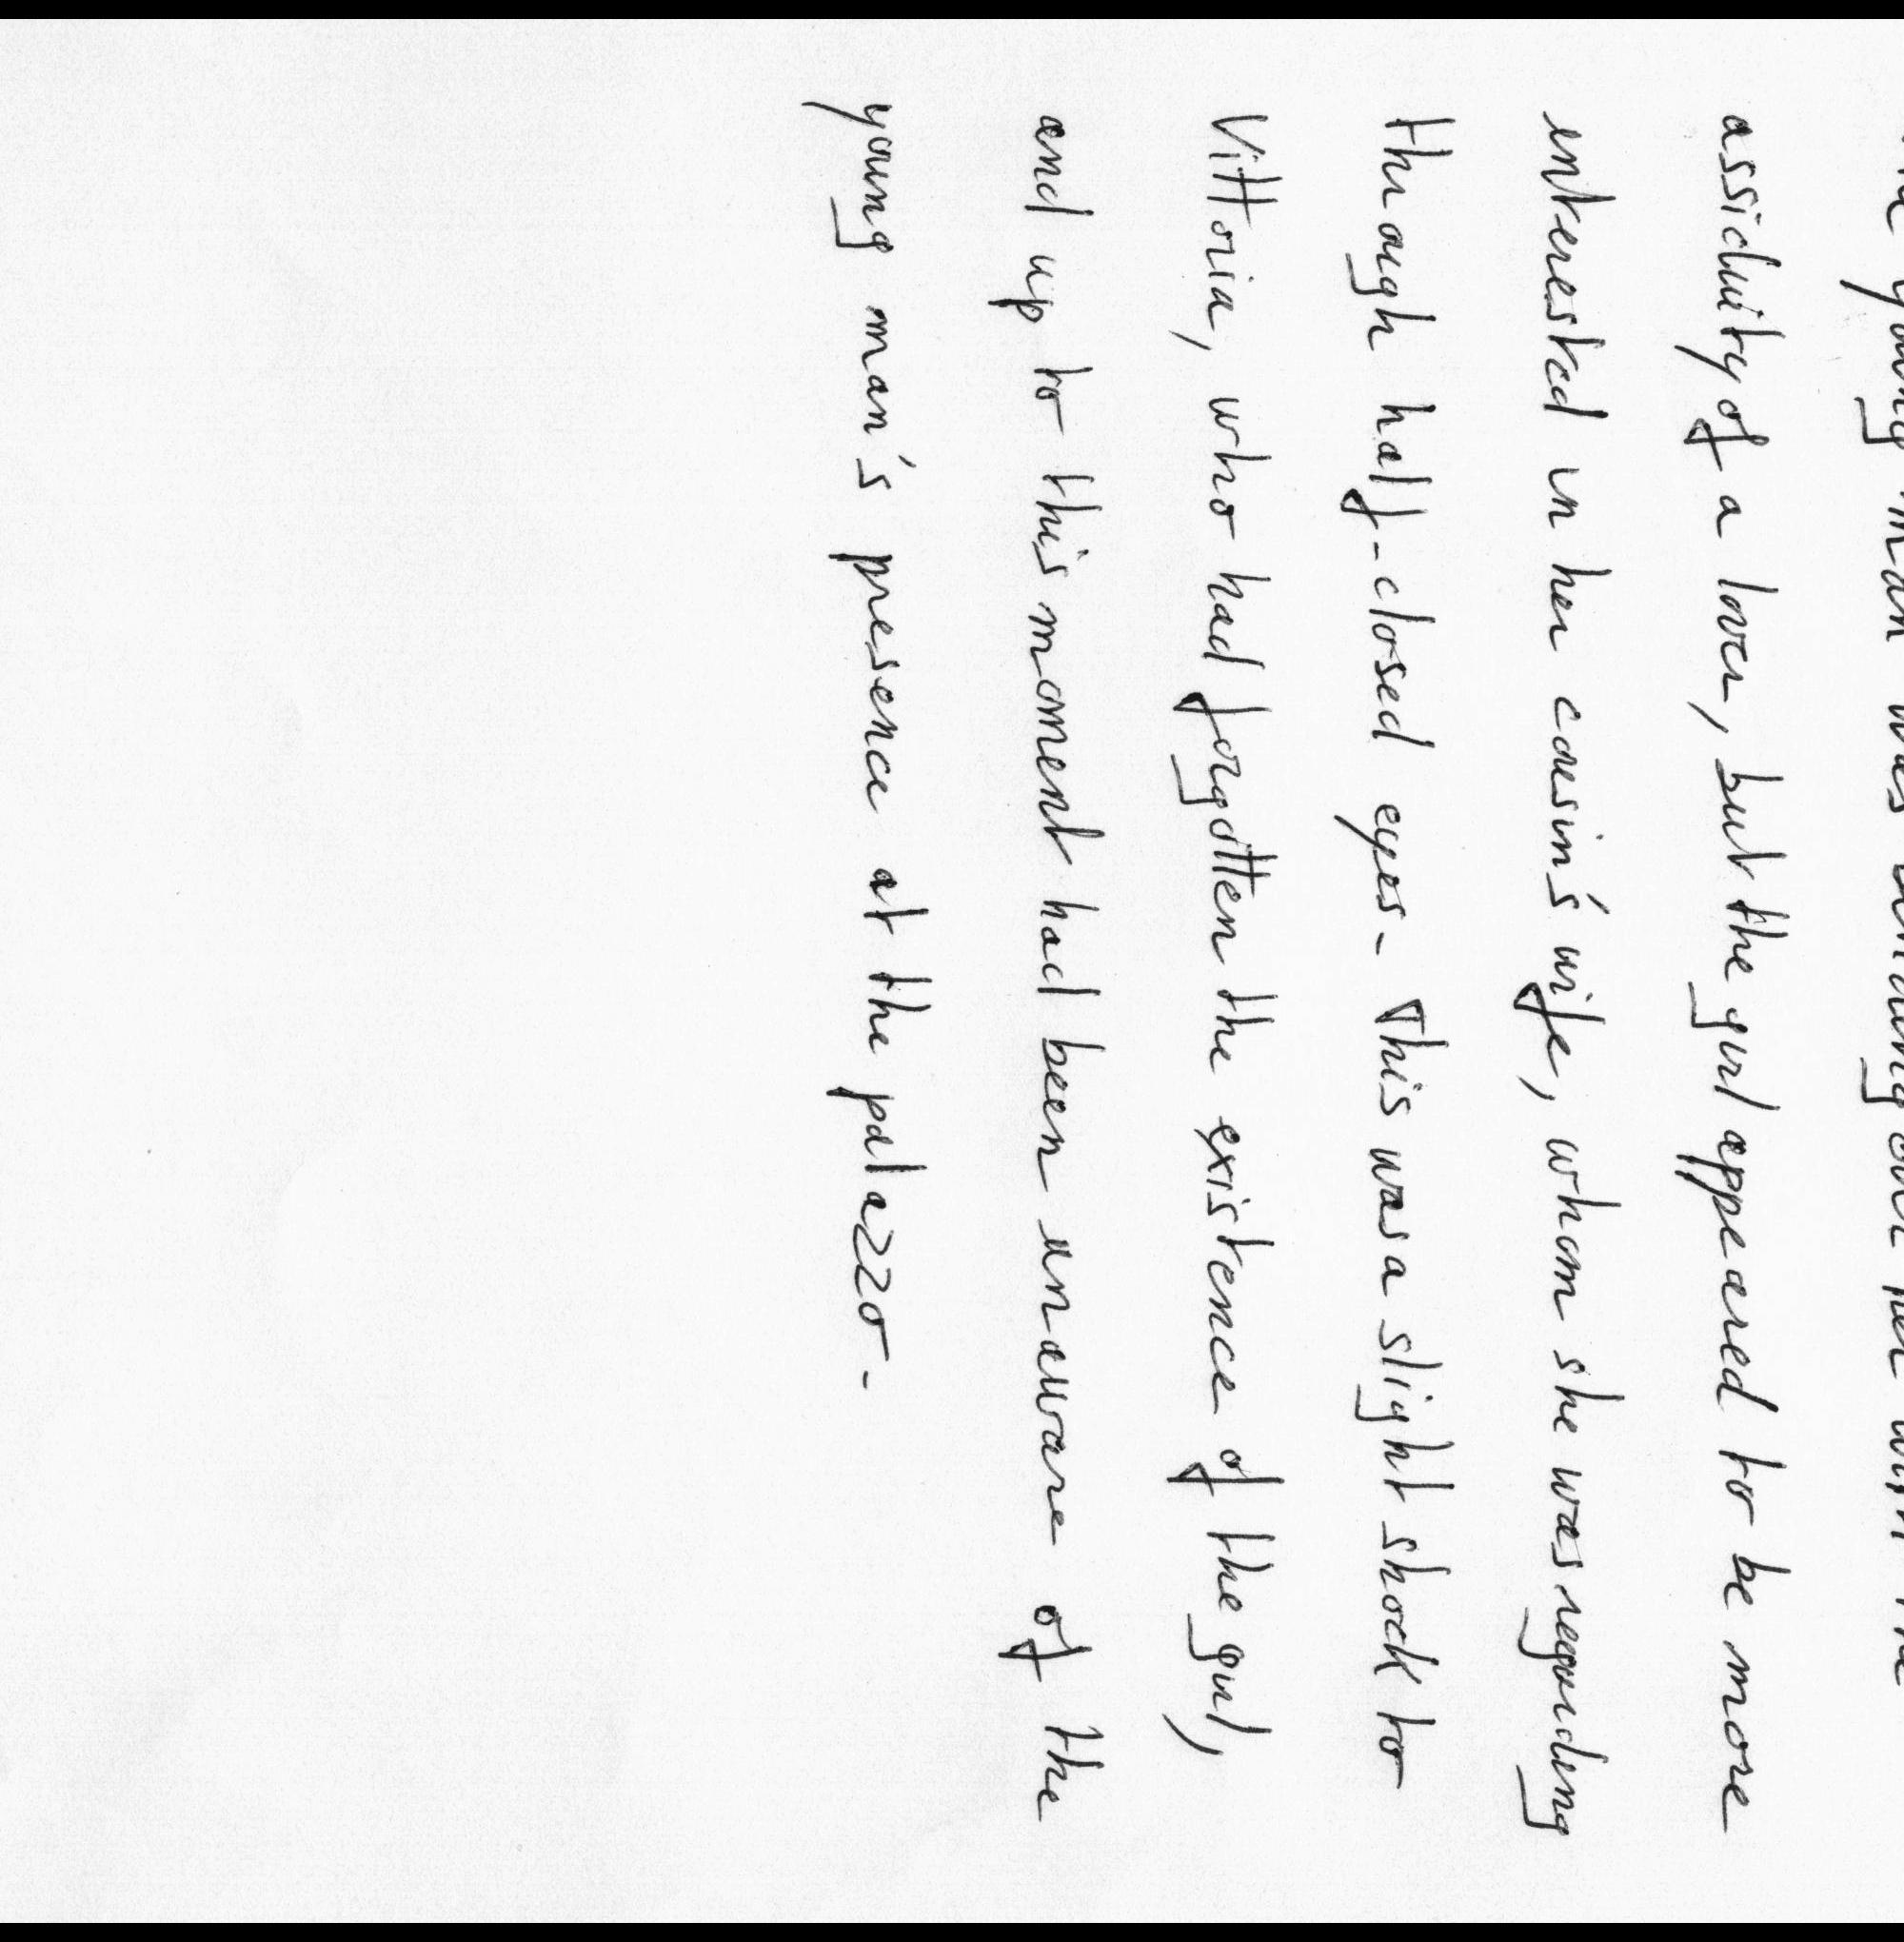 the young man was bending over her with the
assiduity of a lover, but the girl appeared to be more
interested in her cousin's wife, whom she was regarding
through half-closed eyes. This was a slight shock to
Vittoria, who had forgotten the existence of the girl,
and up to this moment had been unaware of the
young man's presence at the palazzo.